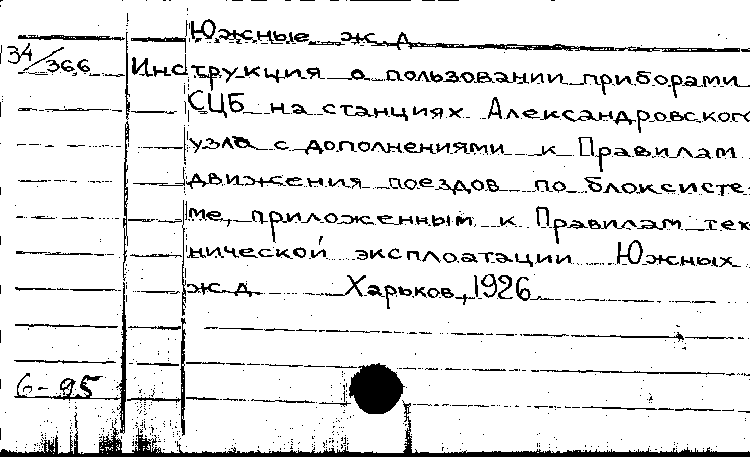 Южные ж.д.
34/366 Инструкция о пользовании приборами
СЦБ на станциях Александровского
узла с дополнениями к Правилам
движения поездов по блоксисте-
ме, приложенным к Правилам тех
нической эксплоатации Южных
ж.д. Харьков, 1926
6-95